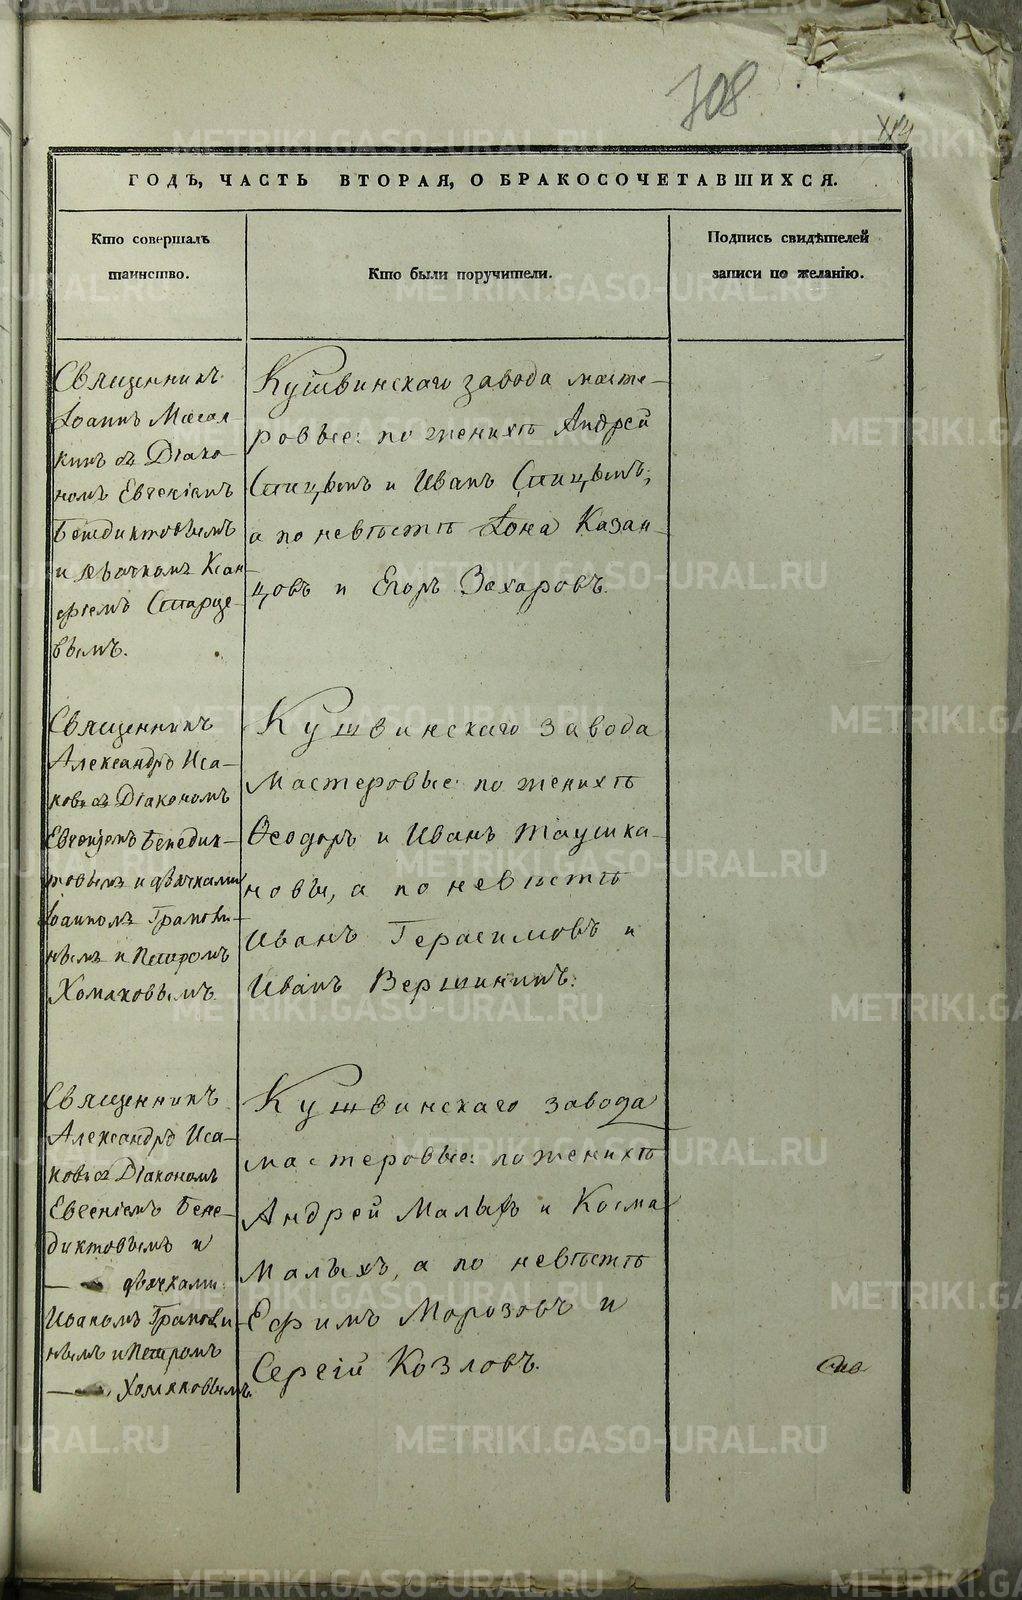 708
ГОДЪ, ЧАСТЬ ВТОРАЯ, О БРАКОСОЧЕТАВШИХСЯ.
Кто совершалъ
таинство.
Кто были поручители.
Подпись свидѣтелей
записи по желанію.
Священникъ
Іоаннъ Масал
кинъ съ Діако-
номъ Евгеніемъ
Бенедиктовымъ
и дьячкомъ Ксан-
фіемъ Старце-
вымъ.
Кушвинскаго завода масте-
ровые: по женихѣ Андрей
Спицынъ и Иванъ Спицынъ,
а по невѣстѣ Іона Казан-
цовъ и Егоръ Захаровъ.
Священникъ
Александръ Иса-
ковъ съ Діакономъ
Евгеніемъ Бенедик-
товымъ и дьячками
Іоанномъ
нымъ и Петромъ
Хомяковымъ.
Кушвинскаго завода
Мастеровые: по женихѣ
Ѳеодоръ и Иванъ Таушка-
новы, а по невѣстѣ
Иванъ Герасимовъ и
Иванъ Вершининъ.
Священникъ
Александръ Иса-
ковъ съ Діакономъ
Евгеніемъ Бене-
диктовымъ и
дьячками
Иоаномъ
нымъ и Петромъ
Хомяковымъ.
Кушвинскаго завода
мастеровые: по женихѣ
Андрей Малыхъ и Косма
Малыхъ, а по невѣстѣ
Ефимъ Морозовъ и
Сергій Козловъ.
METRIKI.GASO-URAL.RU